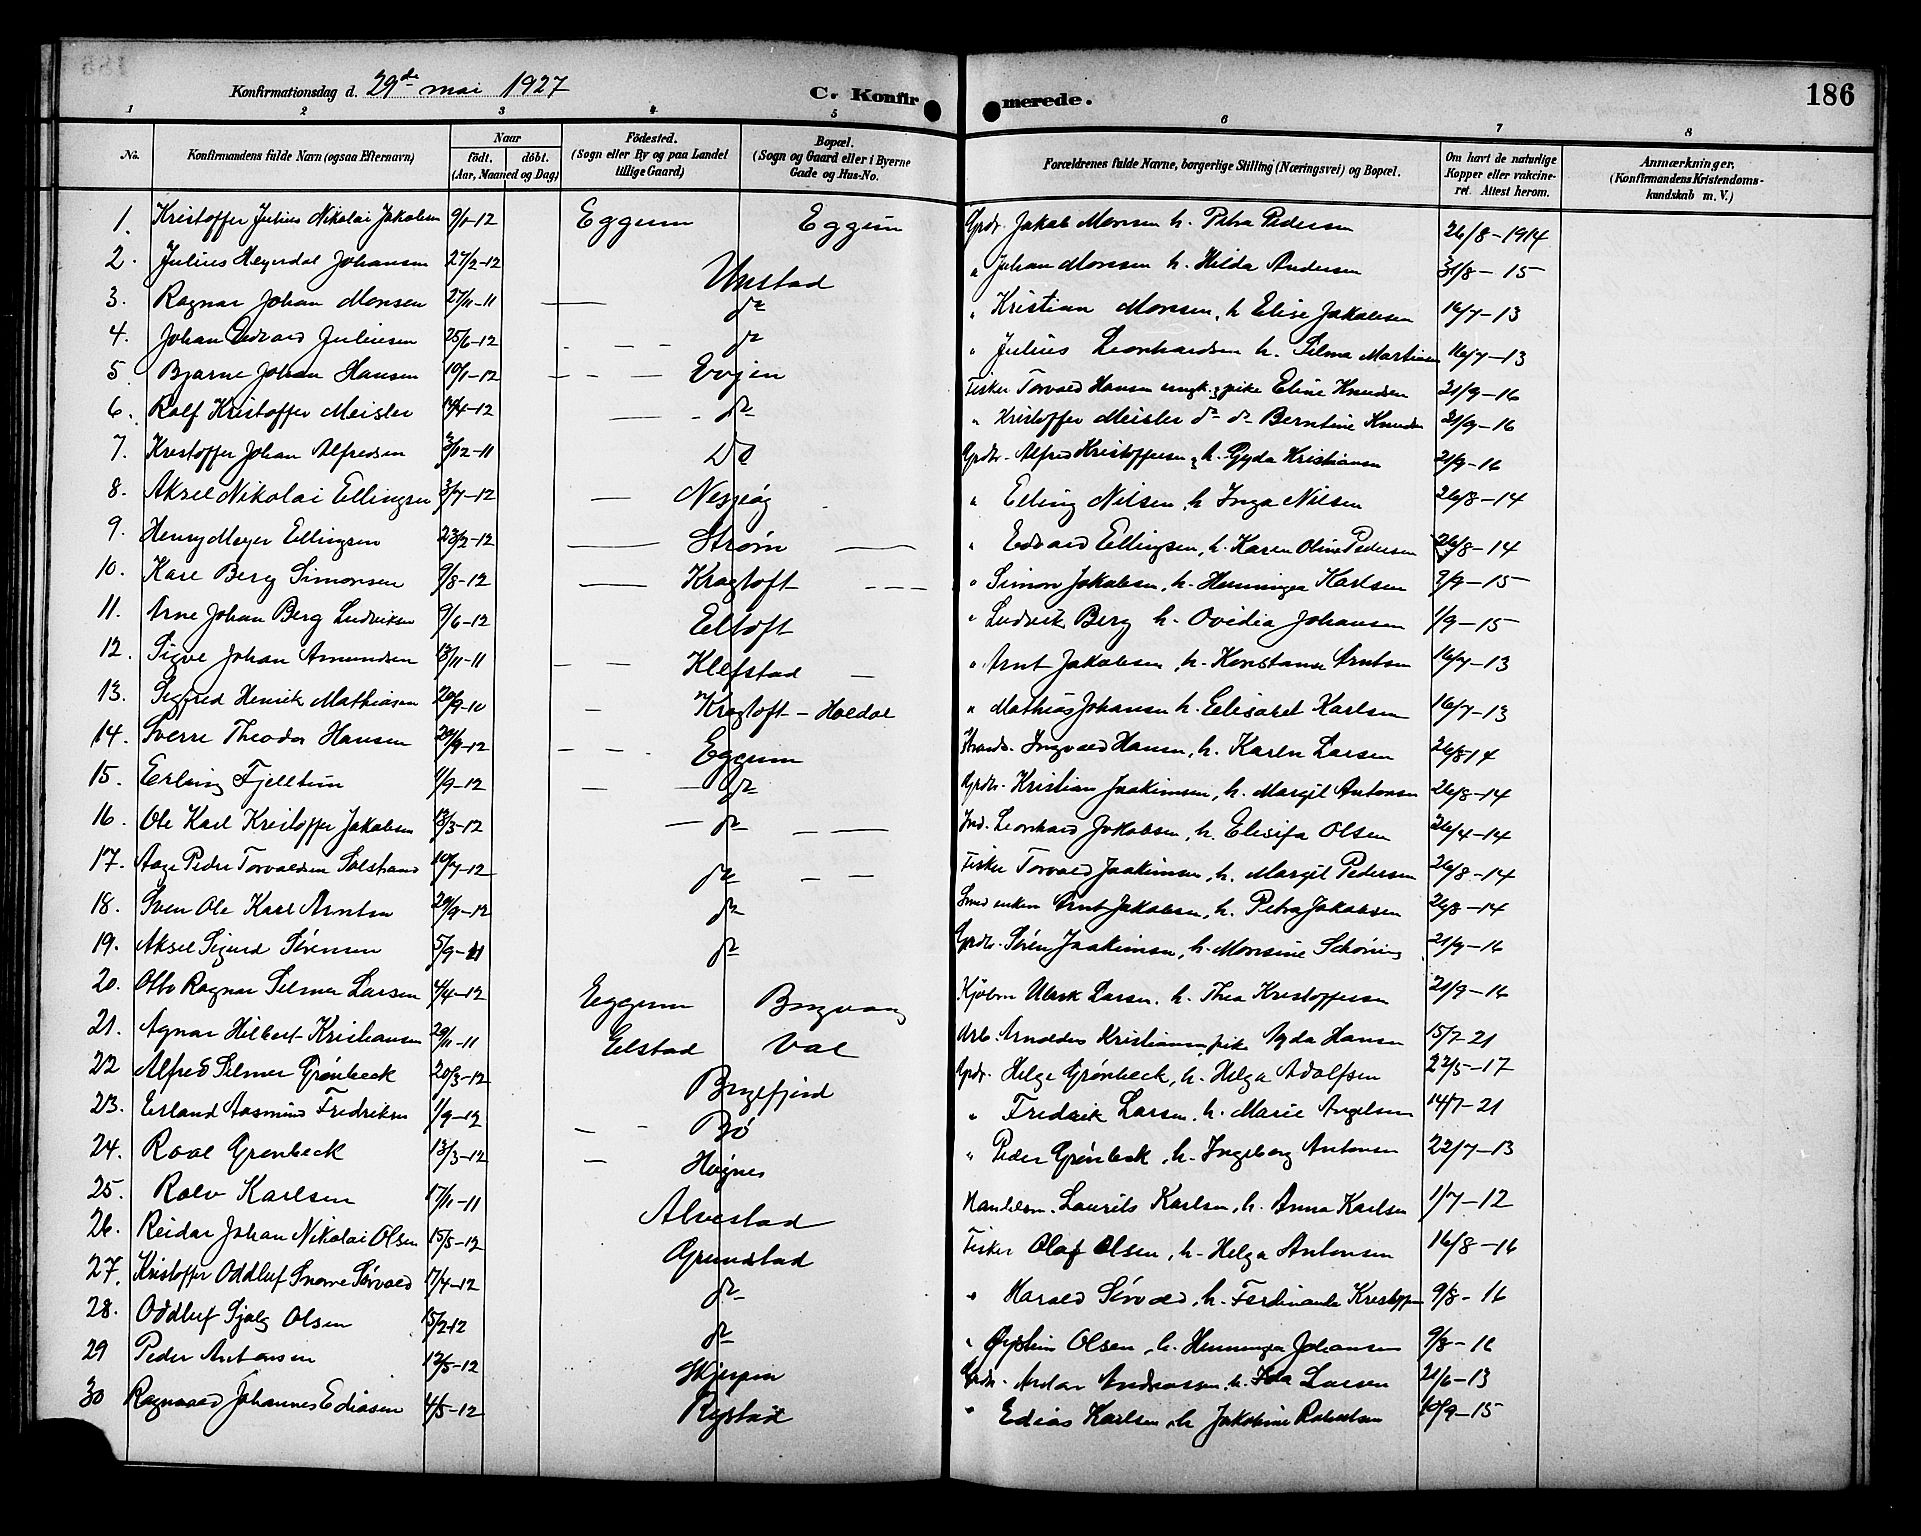 186
Konfirmationsdag d. 29de mai 1927 C. Konfirmerede.
1 2 3 4 5 6 7 8
No. Konfirmandens fulde Navn (ogsaa Efternavn) Naar födt. döbt. (Aar, Maaned og Dag) Födested. (Sogn eller By og paa Landet tillige Gaard) Bopæl. (Sogn og Gaard eller i Byerne Gade og Hus-No. Forældrenes fulde Navne, borgerlige Stilling (Næringsvei) og Bopæl. Om havt de naturlige Kopper eller vakcineret. Attest herom. Anmærkninger. (Konfirmandens Kristendomskundskab m. V.)
1. Kristoffer Julius Nikolai Jakobsen 9/1-12 Eggum Eggum Grdr. Jakob Monsen h. Petra Pedersen 26/8-1914
2. Julius Heyerdal Johansen 27/2-12 Unstad " Johan Monsen h. Hilda Andersen 31/8-15
3. Ragnar Johan Monsen 27/11-11 — do " Kristian Monsen, h. Elise Jakobsen 16/7-13
4. Johan Edvard Juliusen 25/6-12 - - - do " Julius Leonhardsen h. Selma Martinsen 16/7-13
5. Bjarne Johan Hansen 10/1-12 - - — Evjen Fisker Torvald Hansen ungk. og pike Eline Knudsen 21/9-16
6. Rolf Kristoffer Meisler 14/4-12 — - do " Kristoffer Meisler do do Berntine Knudsen 21/9-16
7. Kristoffer Johan Alfredsen 3/12-11 Do Grdbr. Alfred Kristoffersen, h. Gyda Kristiansen 21/9-16
8. Aksel Nikolai Ellingsen 3/7-12 — Nesje " Elling Nilsen, h. Inga Nilsen 26/8-14
9. Henry Meyer Ellingsen 23/2-12 — Strøm — " Edvard Ellingsen, h. Karen Oline Pedersen 26/8-14
10. Kare Berg Simonsen 9/8-12 — Kragtoft - - - " Simon Jakobsen, h. Henninga Karlsen 3/9-15
11. Arne Johan Berg Ludviksen 9/6-12 Eltoft " Ludvik Berg h. Ovidia Johansen 1/9-15
12. Sigve Johan Amundsen 13/11-11 - - Klefstad — " Arnt Jakobsen, h. Konstanse Arntsen 16/7-13
13. Sigfred Henrik Mathiasen 20/9-10 - Kragtoft - Holdal " Mathias Johansen h. Elisabet Karlsen 16/7-13
14. Sverre Theodor Hansen 20/9-12 - - - Eggum Strands. Ingvald Hansen, h. Karen Larsen 26/8-14
15. Erling Fjelltun 1/9-12 - - do Grdbr. Kristian Joakimsen, h. Margit Antonsen 26/8-14
16. Ole Karl Kristoffer Jakobsen 13/3-12 — do - — Ind. Leonhard Jakobsen, h. Elisifa Olsen 26/4-14
17. Aage Peder Torvaldsen Solstrand 10/7-12 do - - Fisker Torvald Joakimsen, h. Margit Pedersen 26/8-14
18. Sven Ole Karl Arntsen 29/9-12 do Smed enkem. Arnt Jakobsen, h. Petra Jakobsen 26/8-14
19. Aksel Sigurd Sørensen 5/9-11 do Grdbr. Søren Joakimsen, h. Monsine Schøning 21/9-16
20. Otto Ragnar Selmer Larsen 4/4-12 Eggum Borgvaag Kjøbm Ulrik Larsen, h. Thea Kristoffersen 21/9-16
21. Agnar Hilbert Kristiansen 29/11-11 Elstad Val Arb. Arnoldus Kristiansen, pike Agda Hansen 15/7-21
22 Alfred Selmer Grønbeck 20/3-12 Borgefjord Grdr. Helge Grønbeck, h. Helga Adolfsen 22/5-17
23. Erland Aasmund Fredriksen 1/9-12 - - Bø " Fredrik Larsen, h. Marie Angelsen 14/7-21
24. Roal Grønbeck 13/3-12 - Høynes " Peder Grønbeck, h. Ingeborg Antonsen 22/7-13
25. Rolv Karlsen 17/11-11 Alvestad Handelsm. Laurits Karlsen, h. Anna Karlsen 1/7-12
26. Reidar Johan Nikolai Olsen 15/5-12 Grundstad Fisker Olaf Olsen, h. Helga Antonsen 16/8-16
27. Kristoffer Oddluf Snorre Sørvald 17/4-12 do " Harald Sørvald, h. Ferdinanda Kristoffersen 9/8-16
28. Oddluf Sjolg Olsen 15/2-12 do " Øystein Olsen, h. Henninga Johansen 9/8-16
29 Peder Antonsen 12/5-12 Skjerpen Grdbr. Anton Andreassen, h. Ida Larsen 21/6-13
30 Ragnvald Johannes Ediasen 4/5-12 Rystad " Edias Karlsen, h. Jakobine Robertsen 10/9-15